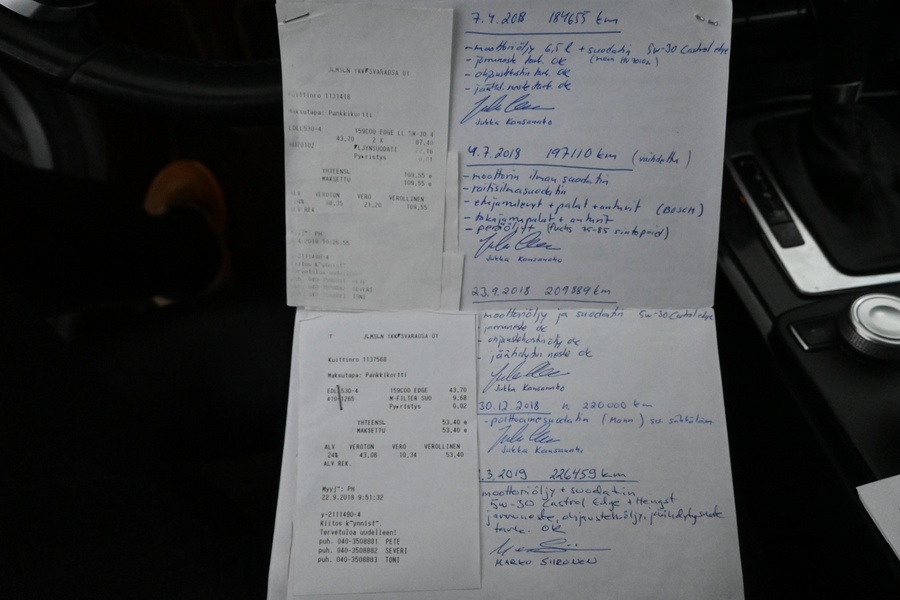 YKK*SVARAOSA OY
Kuittinro 1131418
Maksutapa: Pankkikortti
159C00 EDGE LL 5W-30 4
43,70 2 X 87,40
Pyöristys
YHTEENSÄ 109,55
MAKSETTU 109,55
ALV VEROTON VERO VEROLLINEN
24% 21,20 109,55
ALV REK.
SEVERI
TONI
YKK*SVARAOSA OY
Kuittinro 1137568
Maksutapa: Pankkikortti
159C00 EDGE 43,70
M-FILTER SUO 9,68
Pyöristys 0,02
YHTEENS* 53,40 e
MAKSETTU 53,40 e
ALV VEROTON VERO VEROLLINEN
24% 43,06 10,34 53,40
ALV REK.
Myyj*: PH
22.9.2018 9:51:32
y-2111490-4
Kiitos k*ynnist*.
Tervetuloa uudelleen!
puh. 040-3508881 PETE
puh. 040-3508882 SEVERI
puh. 040-3508883 TONI
7.4.2018 184655 km
- moottoriöljy 6,5 l + suodatin 5w-30 Castrol edge
- jarruneste tark. OK
- ohjaustehostin tark. OK
- jäähd. neste tark. OK
Jukka Kansanaho
4.7.2018 197110 km (vaihdettu)
- moottorin ilman suodatin
- raitisilmasuodatin
- etujarrulevyt + palat + anturit (BOSCH)
- takajarrupalat + anturit
- peräöljyt (Fuchs 75-85 sintopoid)
Jukka Kansanaho
23.9.2018 209889 km
- moottoriöljy ja suodatin 5w-30 Castrol edge
- jarruneste ok
- ohjaustehostinöljy ok
- jäähdytin neste ok
Jukka Kansanaho
30.12.2018 n. 220000 km
- polttoainesuodatin (Mann)
Jukka Kansanaho
.3.2019 226459 km
moottoriöljy + suodatin
5w-30 Castrol Edge + Hengst
jarruneste, ohjaustehöljy, jäähdytysneste
tark. OK
MARKO SIIRONEN